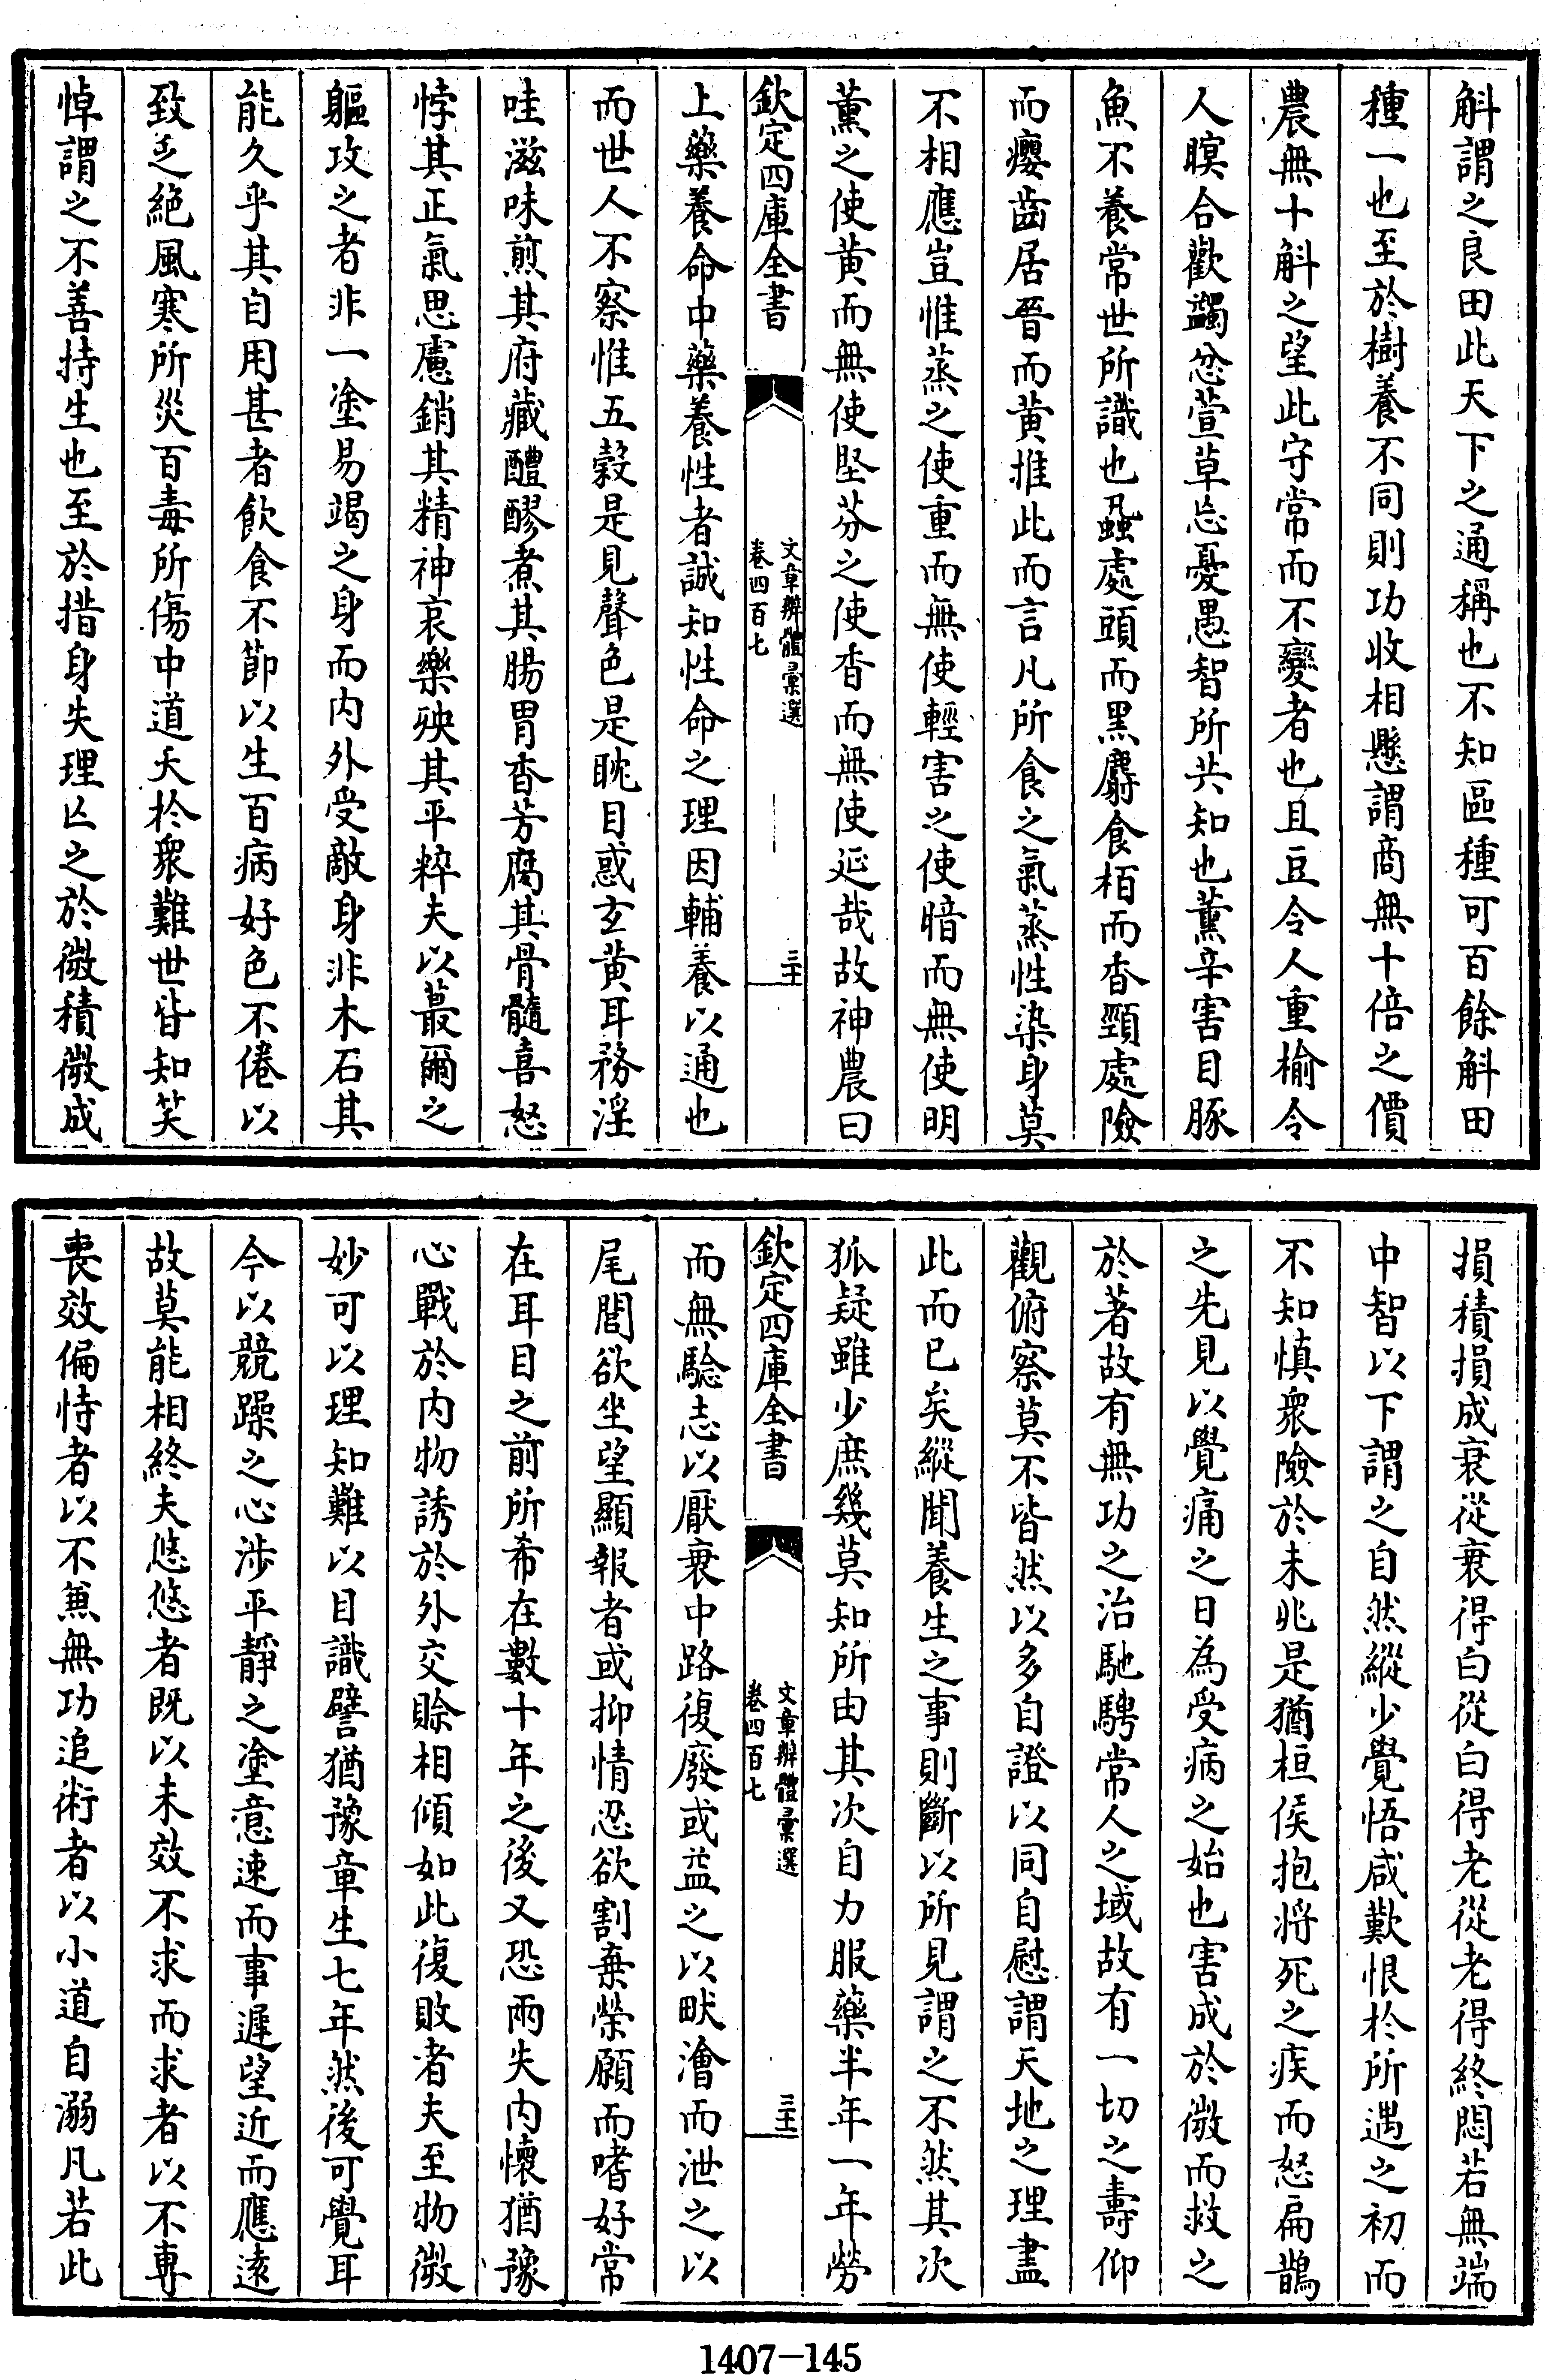 斛謂之良田此天下之通稱也不知區種可百餘斛田
種一也至於樹養不同則功收相懸謂商無十倍之價
農無十斛之望此守常而不變者也且豆令人重榆令
人瞑合歡蠲忿萱草忘憂愚智所共知也薰辛害目豚
魚不養常世所識也蝨處頭而黑麝食栢而香頸處險
而癭齒居晉而黄推此而言凡所食之氣蒸性染身莫
不相應豈惟蒸之使重而無使輕害之使暗而無使明
薰之使黄而無使堅芬之使香而無使延哉故神農曰
欽定四庫全書
文章辨體彙選
卷四百七
三十
上藥養命中藥養性者誠知性命之理因輔養以通也
而世人不察惟五穀是見聲色是耽目惑玄黄耳務淫
哇滋味煎其府藏醴醪煮其腸胃香芳腐其骨髓喜怒
悖其正氣思慮銷其精神哀樂殃其平粹夫以蕞爾之
軀攻之者非一塗易竭之身而内外受敵身非木石其
能久乎其自用甚者飲食不節以生百病好色不倦以
致乏絶風寒所災百毒所傷中道夭於衆難世皆知笑
悼謂之不善持生也至於措身失理亡之於微積微成
損積損成衰從衰得白從白得老從老得終悶若無端
中智以下謂之自然縱少覺悟咸歎恨於所遇之初而
不知慎衆險於未兆是猶桓侯抱將死之疾而怒扁鵲
之先見以覺痛之日為受病之始也害成於微而救之
於著故有無功之治馳騁常人之域故有一切之壽仰
觀俯察莫不皆然以多自證以同自慰謂天地之理盡
此而已矣縱聞養生之事則斷以所見謂之不然其次
狐疑雖少庶幾莫知所由其次自力服藥半年一年勞
欽定四庫全書
文章辨體彙選
卷四百七
三十一
而無驗志以厭衰中路復廢或益之以畎澮而泄之以
尾閭欲坐望顯報者或抑情忍欲割棄榮願而嗜好常
在耳目之前所希在數十年之後又恐兩失内懷猶豫
心戰於内物誘於外交賒相傾如此復敗者夫至物微
妙可以理知難以目識譬猶豫章生七年然後可覺耳
今以競躁之心涉平靜之塗意速而事遲望近而應遠
故莫能相終夫悠悠者既以未效不求而求者以不專
喪效偏恃者以不兼無功追術者以小道自溺凡若此
1407-145